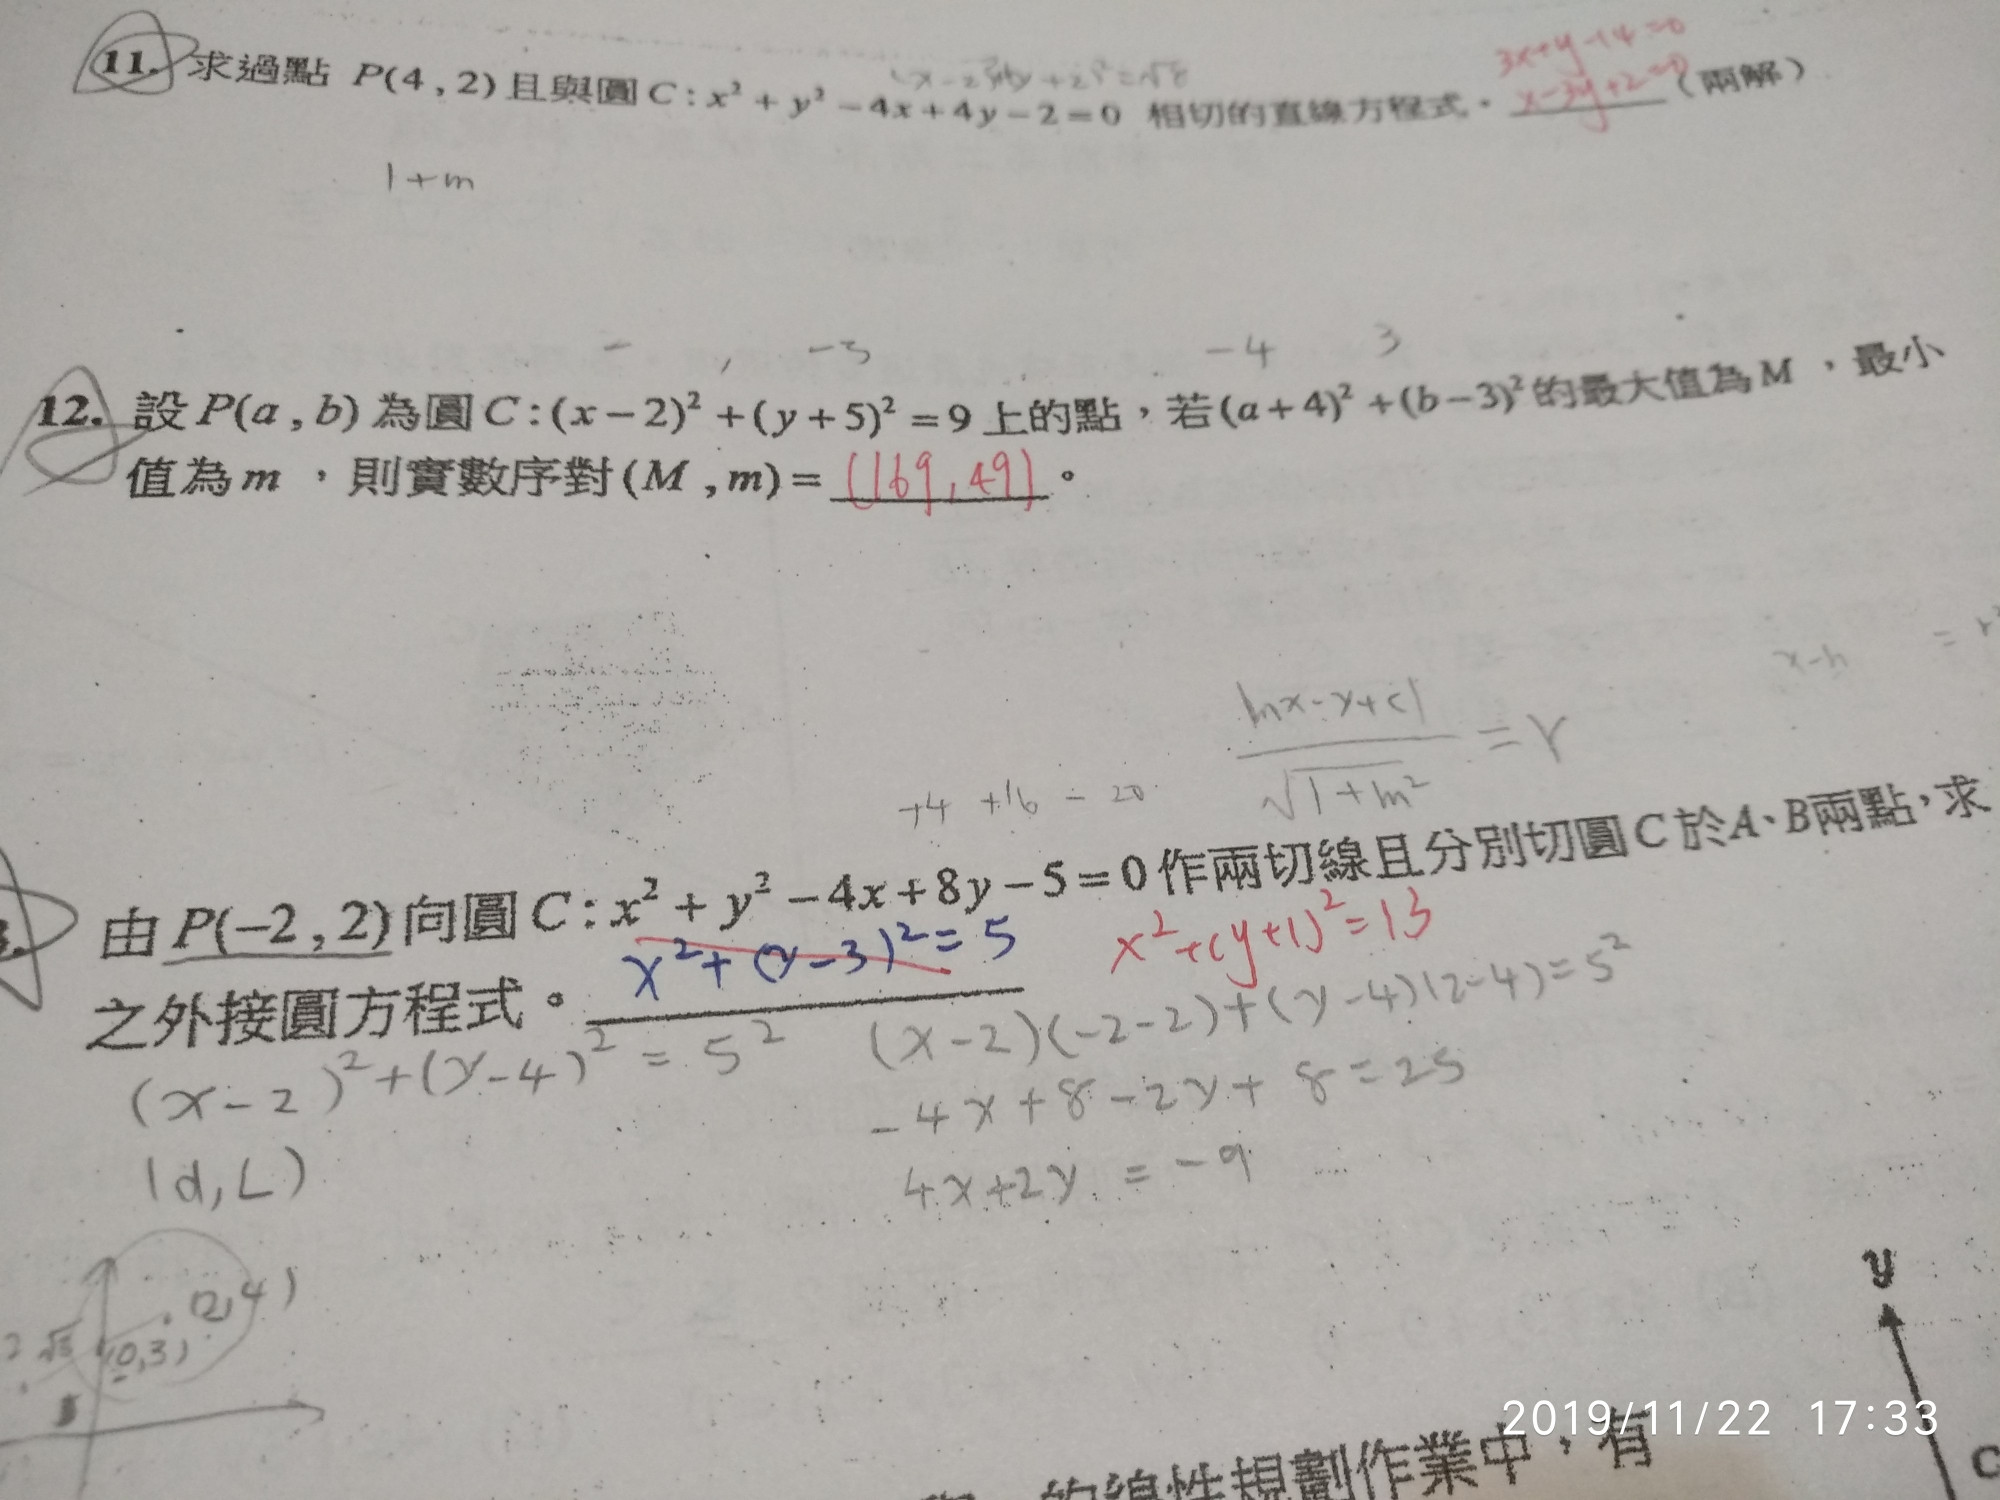 3x+y-14=0
11. 求過點 P(4,2)且與圓C:x²+y²-4x+4y-2=0 相切的直線方程式。x-3y+2=0(兩解)
1+m
-4 3
12. 設P(a,b)為圓C:(x-2)²+(y+5)²=9上的點,若(a+4)²+(b-3)²的最大值為M,最小
值為m,則實數序對(M,m)=(169,49)。
x-h = r²
|mx-y+c|
=r
√1+m²
+4 +16 - 20
由P(-2,2)向圓C:x²+y²-4x+8y-5=0作兩切線且分別切圓C於A、B兩點,求
x²+(y-3)²=5 x²+(y+1)²=13
之外接圓方程式。
(x-2)²+(y-4)²=5² (x-2)(-2-2)+(y-4)(2-4)=5²
-4x+8-2y+8=25
(d,L) 4x+2y=-9
(2,4)
(0,3)
y
2019/11/22 17:33
的線性規劃作業中,有
C